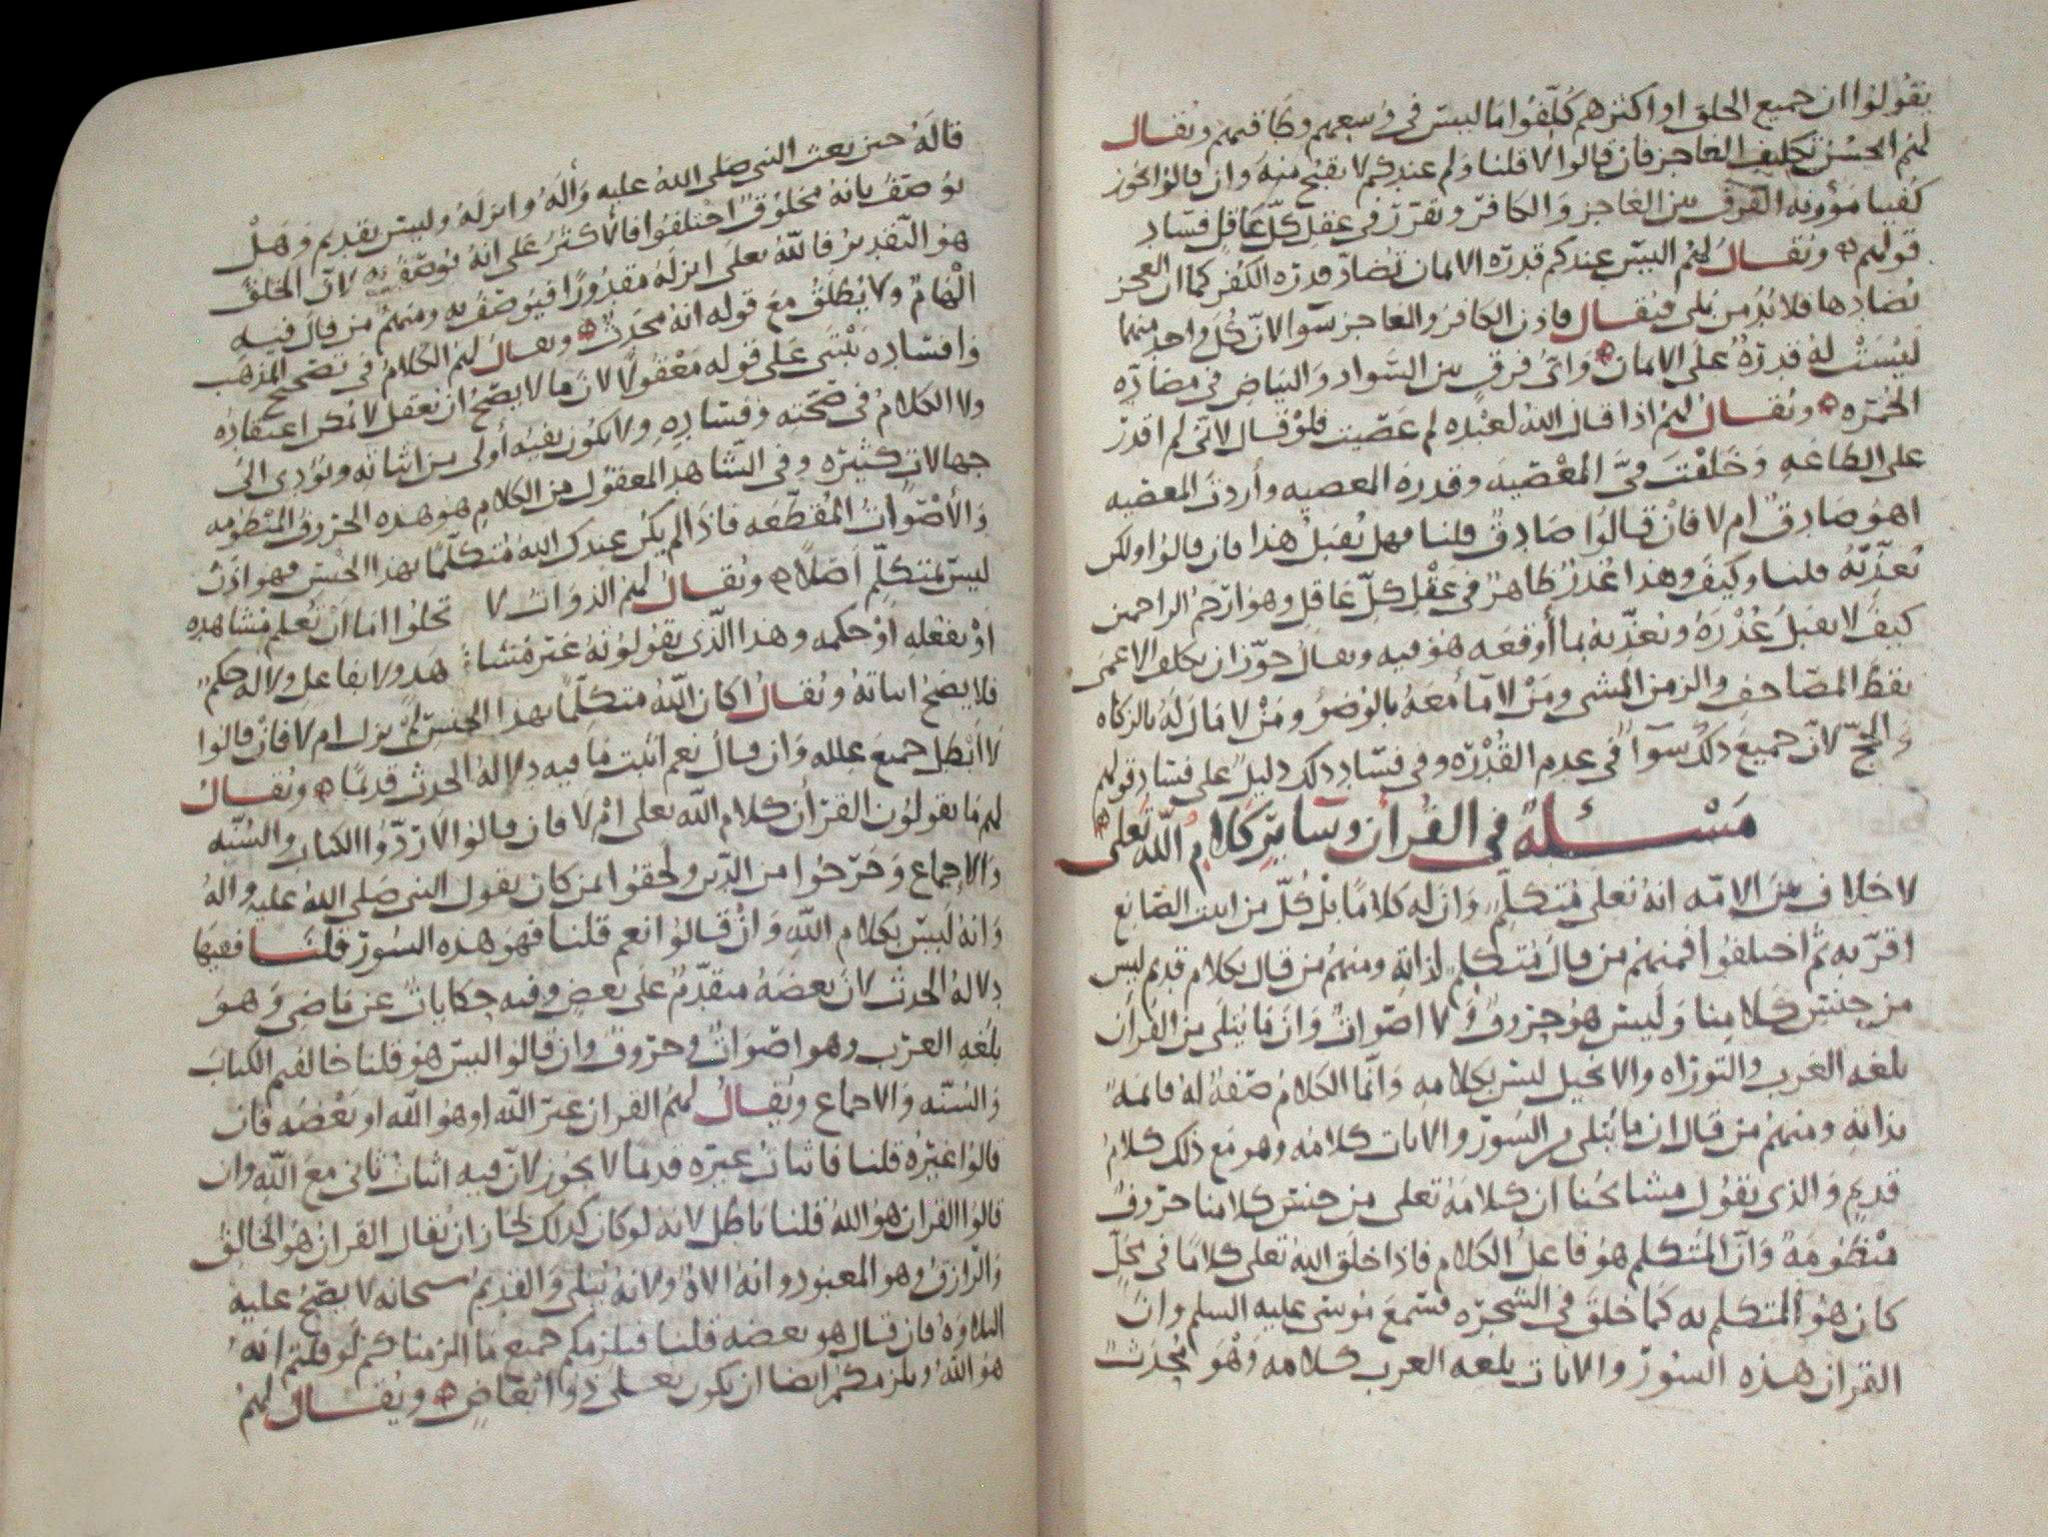 يقولوا ان جميع الخلق او اكثرهم كُلّفُوا ما ليس في وُسعهم وطاقتهم ويُقال
لهُم ايحسُن تكليف العاجز فان قالوا لا قلنا ولم عندكم لا يقبُح منه وان قالوا يجوز
كُفينا مؤونه الفرق بين العاجز والكافر وتقرّر في عقل كلّ عاقل فساد
قولهم ويُقال لهُم اليس عندكم قدرة الايمان تُضادّ قدره الكُفر كما ان العجز
يُضادها فلا بُدّ من بلى فيُقال فاذن الكافر والعاجز سوا لانّ كُل واحد منهما
ليسَتْ لهُ قدرَةُ على الايمان وايّ فرق بين السّواد والبياض في مضادّه
الحُمرَه ويُقالُ لهُم اذا قال اللهُ لعبْده لم عصَيت فلوْ قال لانّي لم اقدر
على الطاعَهِ وخَلقْتَ فيَّ المعْصيه وقدرة المعصيه وأردتَ المعصيه
اهُو صَادِقٌ ام لا فانْ قالُوا صَادِقٌ قلنا فهل تُقبلُ هذا فان قالوا ولكن
تُعذّبُهُ قلنا وكيف وهذا عُذرٌ ظاهرٌ في عَقْلِ كلّ عَاقل وهو ارْحَمُ الراحمين
كيفَ لا يقبَلُ عُذْرَهُ ويُعذّبهُ بما أوقعَه هُو فيه ويقالُ جوّز ان يكلف الاعمى
نقط المصَاحفِ والزمن المشي ومَنْ لا مآءَ معَهُ بالوُضوُ ومَنْ لا مَالَ لَهُ بالزكاه
والحَجّ لانّ جميعَ ذلكَ سوآءً في عدم القُدْرَه وفي فسَادِ ذلك دليلٌ على فسَادِ قولهم
مَسْئلَهٌ في القُرآن وسَايرِ كَلامُ اللهِ تَعلى
لا خلاف بينَ الامّه انهُ تعلى مُتكلّم وان له كلامًا بلْ كُلّ من اثبت الصّانع
اقرّ به ثُمّ اختلفُوا فمنهُم من قالَ مُتكلّم لذاتِه ومنهُم من قال بكلام قديم ليس
من جنسِ كلامِنا ولَيس هُو حروفٌ ولا اصْواتٌ وان مَا يُتلَى من القُرآن
بلغه العَرب والتوراه والانجيل ليس بكلامه وانّما الكلامُ صفةٌ لهُ قائمةٌ
بذاتِهِ ومنهُم من قال ان ما يُتلى من السُور والايات كلامُه وهو مع ذلك كلامٌ
قديمٌ والذي يقوُل مشائخُنا ان كلامَهُ تعلى من جنس كلامنا حروفٌ
منْظُومَةٌ وانّ المُتكلم هُو فاعلُ الكلام فاذا خلَق اللهُ تعلى كلامًا في مَحَلٍّ
كان هُو المُتكلم به كمَا خلقَ في الشجرَه فسَمعَ مُوسى عليه السلم وانّ
القران هذه السُورَ والايات بلغه العرب كلامه وهْوَ مُحدَثٌ
قالَهُ حين بعث النبي صَلى اللهُ عليه وآلَهُ وانزلَهُ وليس بقديم وهَلْ
يُوصَفُ بانهُ مخلُوقٌ اختلفُوا فالأكثرُ على انهُ يُوصَفُ به لانّ الخلقَ
هو التّقديرُ فاللهُ تعلَى انزلَهُ مقدُورًا فيُوصَفُ به ومنهمُ من قال فيه
ايْهَامٌ ولا يُطلَقُ مَعَ قوله انهُ مُحدَثٌ ويقالُ لهُم الكلامُ في تصحيح المذهَب
وَافسَادِه يَبْتني عَلى قوله مَعْقُولًا لانّ ما لا يصحّ ان يُعقل لا يُمكن اعتقادُه
ولا الكلامُ في صحّتهِ وفسَادِهِ ولا يكُون نفيُه أولى من اثباته ويُؤدي الى
جهالاتٍ كثيرَه وفي الشّاهدِ المعقُول من الكلام هُو هذه الحروفُ المنظومه
والأصْوَاتُ المُقطّعَه فاذا لم يكُن عندك اللهُ مُتكلّمًا بهذا الجنسِ فهو اذنْ
ليسَ بمتكلّم اصْلًا ويُقالُ لهُم الذّوَاتُ لا تخلُوا امّا ان تُعلم مُشاهده
أوْ بفعلهِ أوْ حكمه وهذا الّذي يقُولُونهُ غير مُشاهَد ولا بفاعل ولا له حكمٌ
فلا يصحّ اثباتهُ ويُقالُ اكان اللّهُ متكلّمًا بهذا الجنس لم يزل ام لا فانْ قالوا
لا أبْطل جميعَ علله وان قال نعم اثبت مَا فيه دِلالهُ الحدث قديمًا ويُقالُ
لهم مَا يقولوُن القرآن كلام اللّه تعلى امْ لا فان قالوا لا ردّوا الكتاب والسُنّه
والاجماع وخَرَجُوا من الدّين ولحقوا بمن كان يقول النبي صَلى اللهُ عليه والهُ
وانهُ لَيسَ بكلام اللّهِ وانْ قالُوا نعم قلنا فهَو هذه السُورَ قلنَا ففيهَا
دِلالهُ الحدث لانّ بعضَهُ متقدّمٌ عَلى بعضٍ وفيه حكاياتٌ عن مَاضي وَهوَ
بلُغهِ العرَب وهو اصْوَاتٌ وحروفٌ وان قالوا ليسَ هو قلنا خالفتم الكتاب
والسُنّه والاجماع ويُقالُ لهُم القران غيرُ اللّه او هُو اللّه او بَعْضُه فان
قالُوا غيرُهُ قلنا فاثباتُ غيره قديمًا لا يجُوز لانّ فيه اثباتُ ثاني معَ اللّهِ وان
قالوا القران هوُ اللهُ قلنا باطل لانه لو كان كذلك لجاز ان يُقال القران هُو الخالقُ
والرّازقُ وهو المعبُود وانهُ الالهُ ولانهُ يُتلى والقديمُ سبحانه لا يصحّ عليه
التلاوَهُ فان قال هو بعضه قلنا فيلزمكم جميع ما الزمناكُم لو قلتم انهُ
هو اللّهُ ويلزمكُمُ ايضا ان يكون تعلى ذوا ابْعَاضٍ ويُقالُ لهُمْ